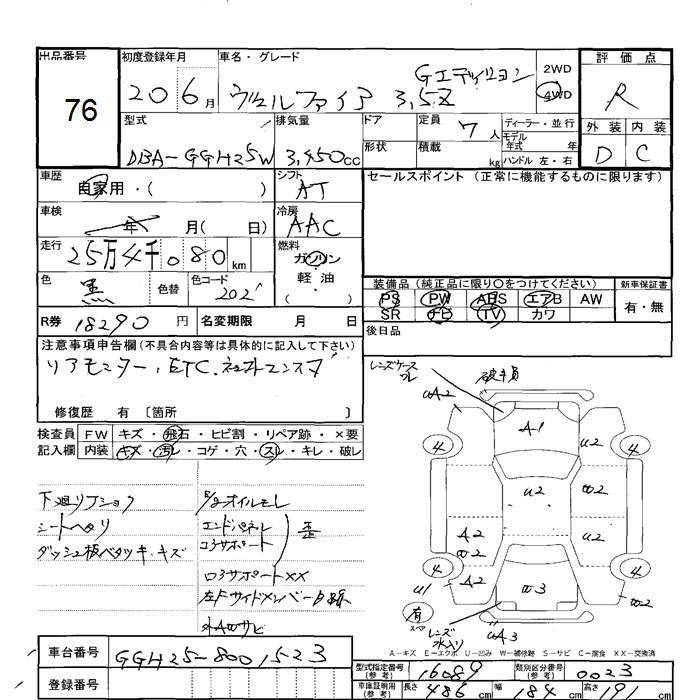 出品番号
76
初度登録年月
20 6月
車名・グレード
Gエディション
ヴェルファイア 3,5Z
2WD
4WD
評価点
R
外装 内装
D C
型式
DBA-GGH25W
排気量
3,450cc
ドア
定員
7人
ディーラー・並行
モデル
年式 年
形状
積載
kg
ハンドル 左・右
車歴
自家用・( )
シフト
AT
セールスポイント (正常に機能するものに限ります)
車検
年 月( 日)
冷房
AAC
走行
25万4千080km
燃料
ガソリン
軽油
( )
色
黒
色替
色コード
202
装備品 (純正品に限り○をつけてください)
新車保証書
PS PW ABS エアB AW
SR TV カワ
有・無
R券 18290円
名変期限 月 日
後日品
注意事項申告欄(不具合内容等は具体的に記入して下さい)
リアモニター、ETC、
修復歴 有 〔箇所 〕
検査員
記入欄
FW キズ・飛石・ヒビ割・リペア跡・×要
内装 キズ・汚レ・コゲ・穴・スレ・キレ・破レ
下廻リ
シートヘタリ
ダッシュ板ベタツキ・キズ
オイルモレ
エンドパネル
コアサポート
歪
コアサポート××
左Fサイドメンバー
サビ
レンズケース
ワレ
A-1
U2
U2
W2
A2
W2
U2
A2
W3
W2
U1
4
4
4
4
有
スペア
レンズ
水入り
A-キズ E-エクボ U-凹み W-補修跡 S-サビ C-腐食 XX-交換済
車台番号
GGH25-8001523
登録番号
型式指定番号
(参考)
16089
類別区分番号
(参考)
0023
車庫証明用
(参考)
長さ 486cm
幅 184cm
高さ 191cm